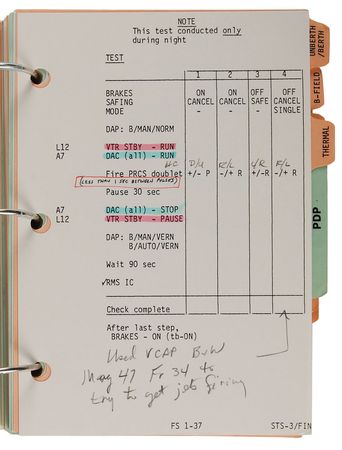 NOTE
This test conducted only
during night
TEST
1 2 3 4
BRAKES ON ON OFF OFF
SAFING CANCEL CANCEL SAFE CANCEL
MODE - - - SINGLE
DAP: B/MAN/NORM
L12 VTR STBY - RUN
A7 DAC (all) - RUN
Fire PRCS doublet +/- P -/+ R +/- R -/+ R
(LESS THAN 1 SEC BETWEEN PULSES)
Pause 30 sec
A7 DAC (all) - STOP
L12 VTR STBY - PAUSE
DAP: B/MAN/VERN
B/AUTO/VERN
Wait 90 sec
✓RMS IC
Check complete
After last step,
BRAKES - ON (tb-ON)
Used VCAP B&W
Mag 47 Fr 34 to
try to get jets firing
FS 1-37 STS-3/FIN
UNBERTH
/BERTH
B-FIELD
THERMAL
PDP